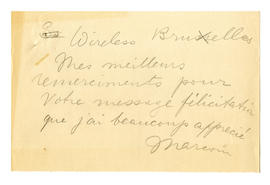 Wireless Bruxelles
Mes meilleurs
remerciments pour
Votre message félicitation
que j'ai beaucoup apprécié
Marconi